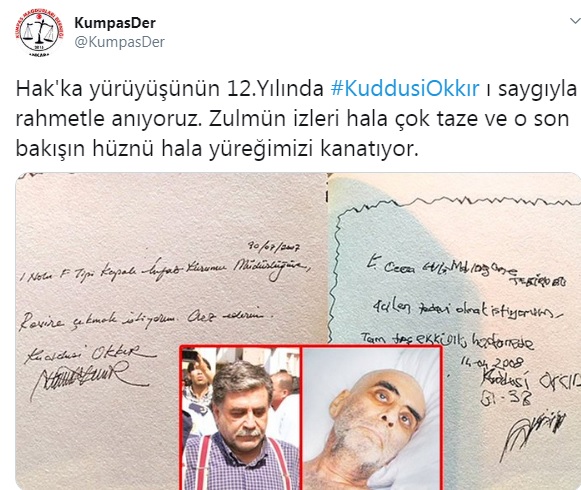 KUMPAS MAĞDURLARI DERNEĞİ
ANKARA
KumpasDer
@KumpasDer
Hak'ka yürüyüşünün 12.Yılında #KuddusiOkkır ı saygıyla
rahmetle anıyoruz. Zulmün izleri hala çok taze ve o son
bakışın hüznü hala yüreğimizi kanatıyor.
Nolu F Tipi Kapalı İnfaz Kurumu Müdürlüğüne,
Revire çıkmak istiyorum. Arz ederim.
Kuddusi OKKIR
TEKİRDAĞ
Acilen tedavi olmak istiyorum,
Tam teşekküllü hastanede
14.04.2008
Kuddusi OKKIR